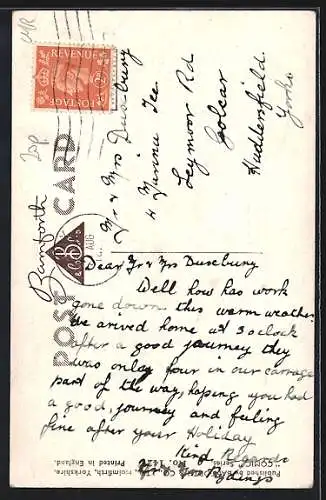 REVENUE
POSTAGE
POST CARD
Bamforth
AUG
Mr & Mrs Duseburg
4 Tavina Tce
Leymoor Rd
Golcar
Huddersfield.
Yorks
Dear Mr & Mrs Duseburg
Well how has work
gone down this warm weather
We arived home at 3 oclock
after a good journey they
was onlay four in our carrage
part of the way, hoping you had
a good, journey and feeling
fine after your Holiday
Kind Regards
Mr & Mrs Rydings
Published by Bamforth & Co. Ltd., Holmfirth, Yorkshire.
"COMIC" Series No.
Printed in England.